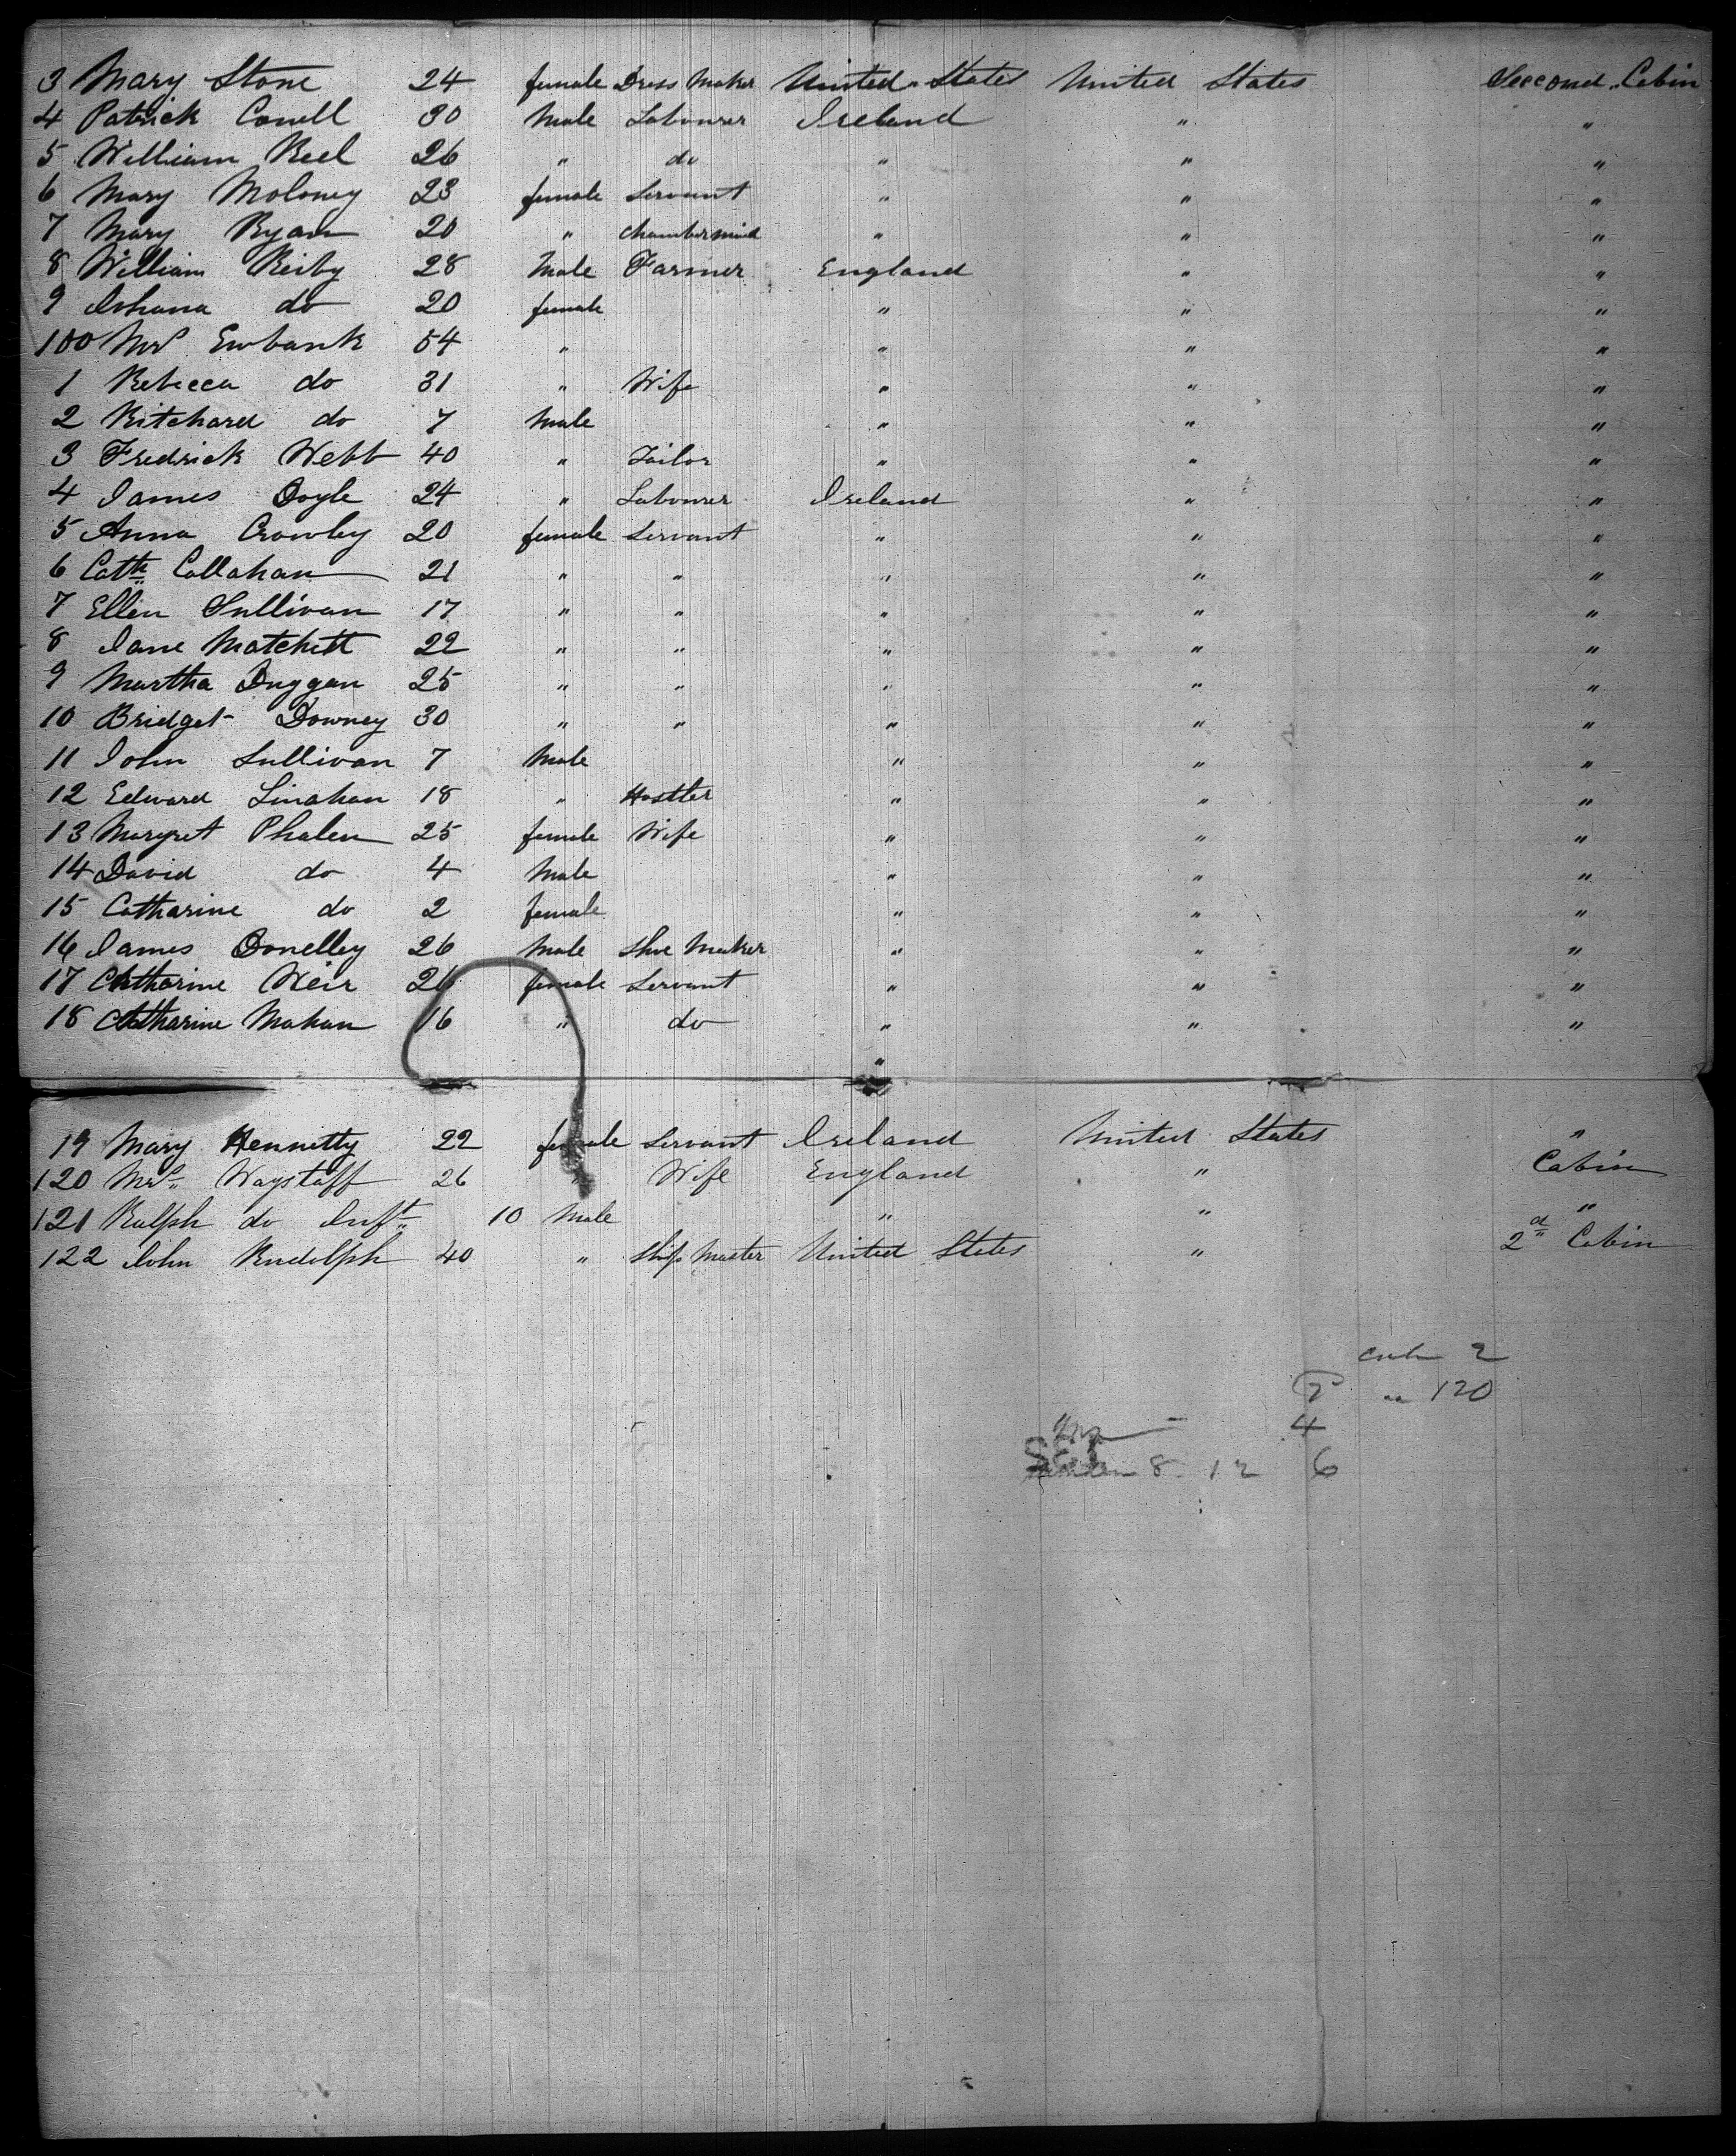 3 Mary Stone 24 female Dress Maker United States United States Seccond Cabin
4 Patrick Conell 30 Male Labourer Ireland " "
5 William Reel 26 " do " " "
6 Mary Moloney 23 female Servant " " "
7 Mary Ryan 20 " Chambermaid " " "
8 William Reiby 28 Male Farmer England " "
9 Johana do 20 female " " "
100 Mrs Ewbank 54 " " " "
1 Rebecca do 31 " Wife " " "
2 Ritchard do 7 Male " " "
3 Fredrick Webb 40 " Tailor " " "
4 James Doyle 24 " Labourer Ireland " "
5 Anna Crowley 20 female Servant " " "
6 Cath Callahan 21 " " " " "
7 Ellen Sullivan 17 " " " " "
8 Jane Matchett 22 " " " " "
9 Martha Duggan 25 " " " " "
10 Bridget Downey 30 " " " " "
11 John Sullivan 7 Male " " "
12 Edward Linahan 18 " Hostler " " "
13 Margret Phalen 25 female Wife " " "
14 David do 4 Male " " "
15 Catharine do 2 female " " "
16 James Donelley 26 Male Shoe Maker " " "
17 Catharine Weir 26 female Servant " " "
18 Catharine Mahan 16 " do " " "
"
19 Mary Hennetty 22 female Servant Ireland United States "
120 Mrs Wagstaff 26 " Wife England " Cabin
121 Ralph do Inft 10 Male " " "
122 John Rudolph 40 " Ship Master United States " 2d Cabin
2
120
4
8 12 6